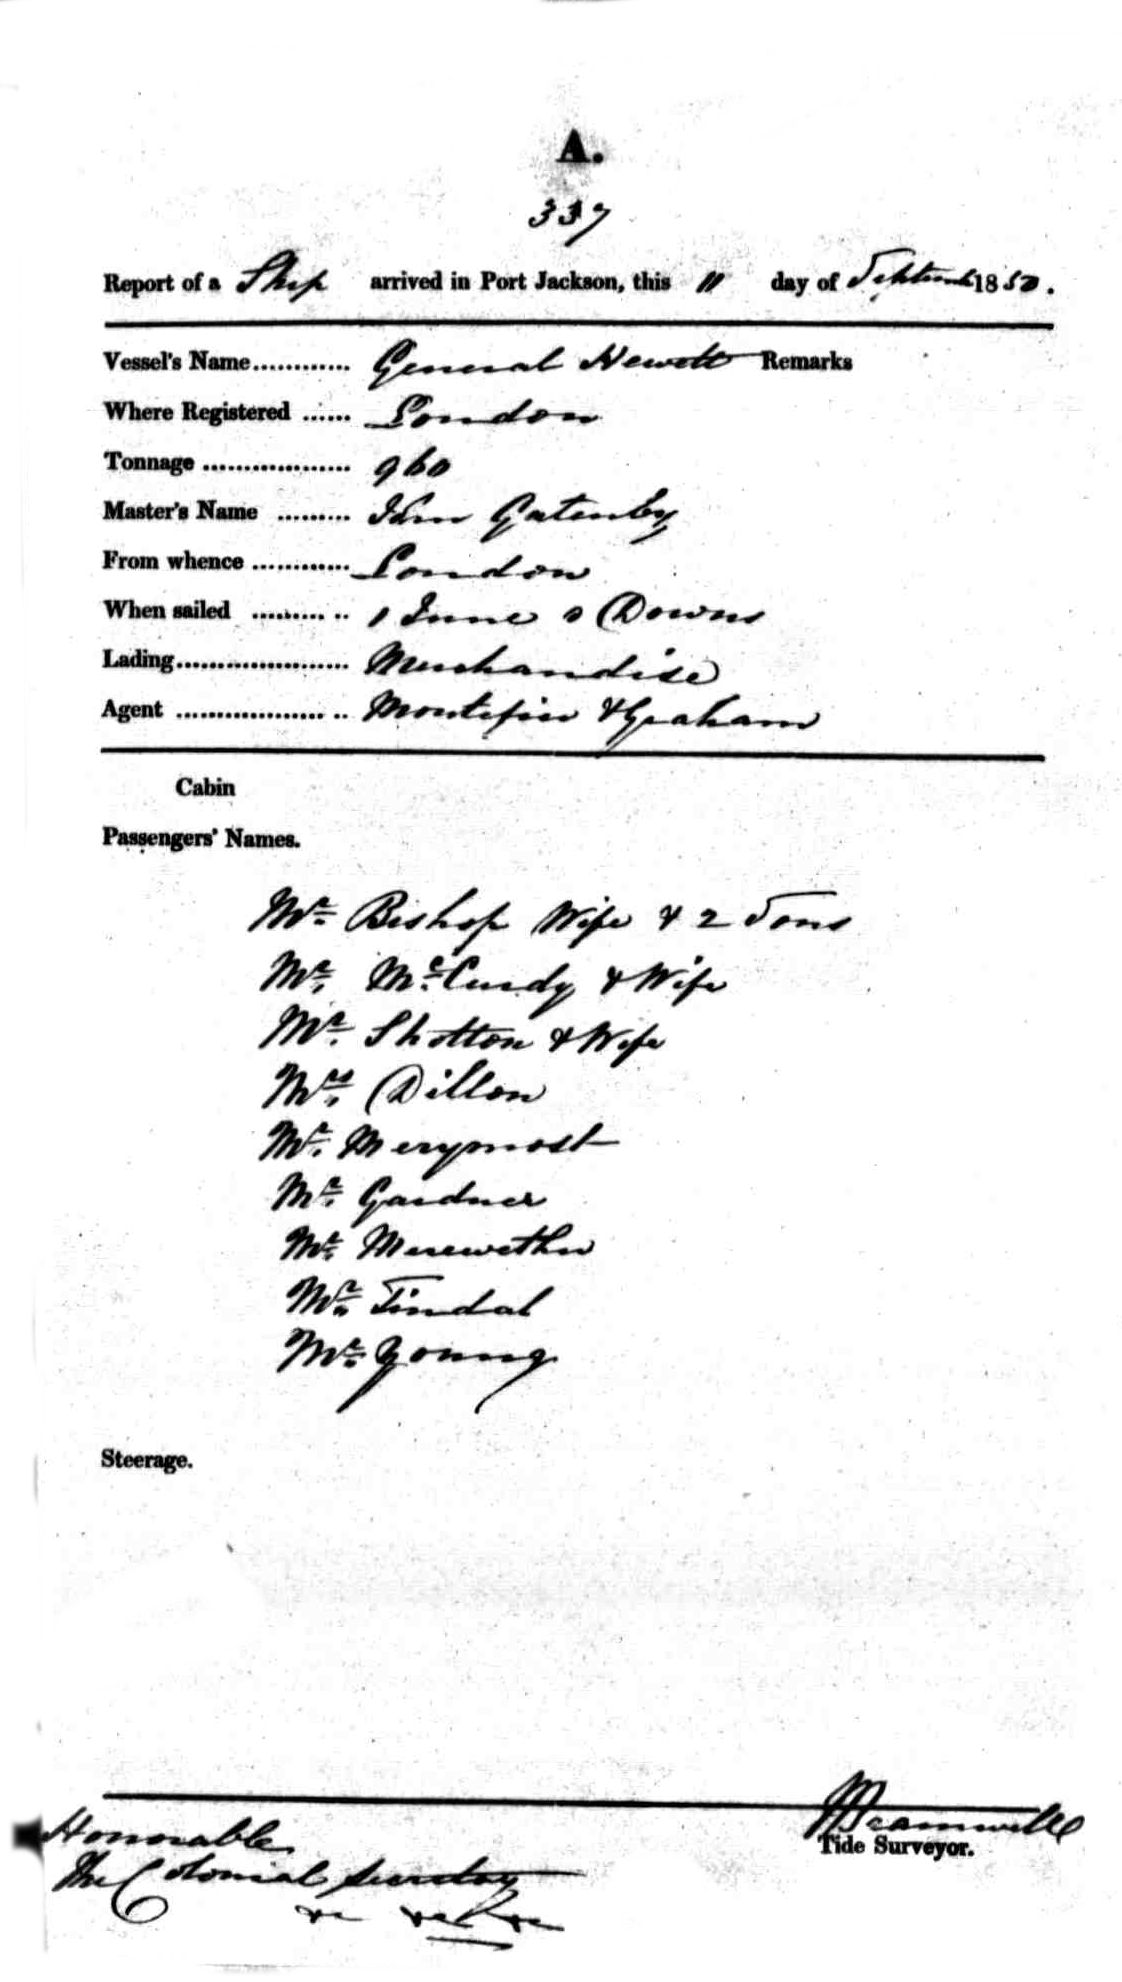 A.
337
Report of a Ship arrived in Port Jackson, this 11 day of September 1850.
Vessel's Name............ General Hewett Remarks
Where Registered ...... London
Tonnage .................. 960
Master's Name ......... Gatenby
From whence ............ London
When sailed ......... .. 1 June Downs
Lading..................... Merchandise
Agent .................. .. Montefior & Graham
Cabin
Passengers' Names.
Mr Bishop Wife & 2 Sons
Mr McCurdy & Wife
Mr Shotton & Wife
Mrs Dillon
Mr Merymost
Mr Gardner
Mr Merewether
Mr Tindal
Mr Young
Steerage.
Bramwell
Tide Surveyor.
Honorable
The Colonial Secretary
&c &c &c